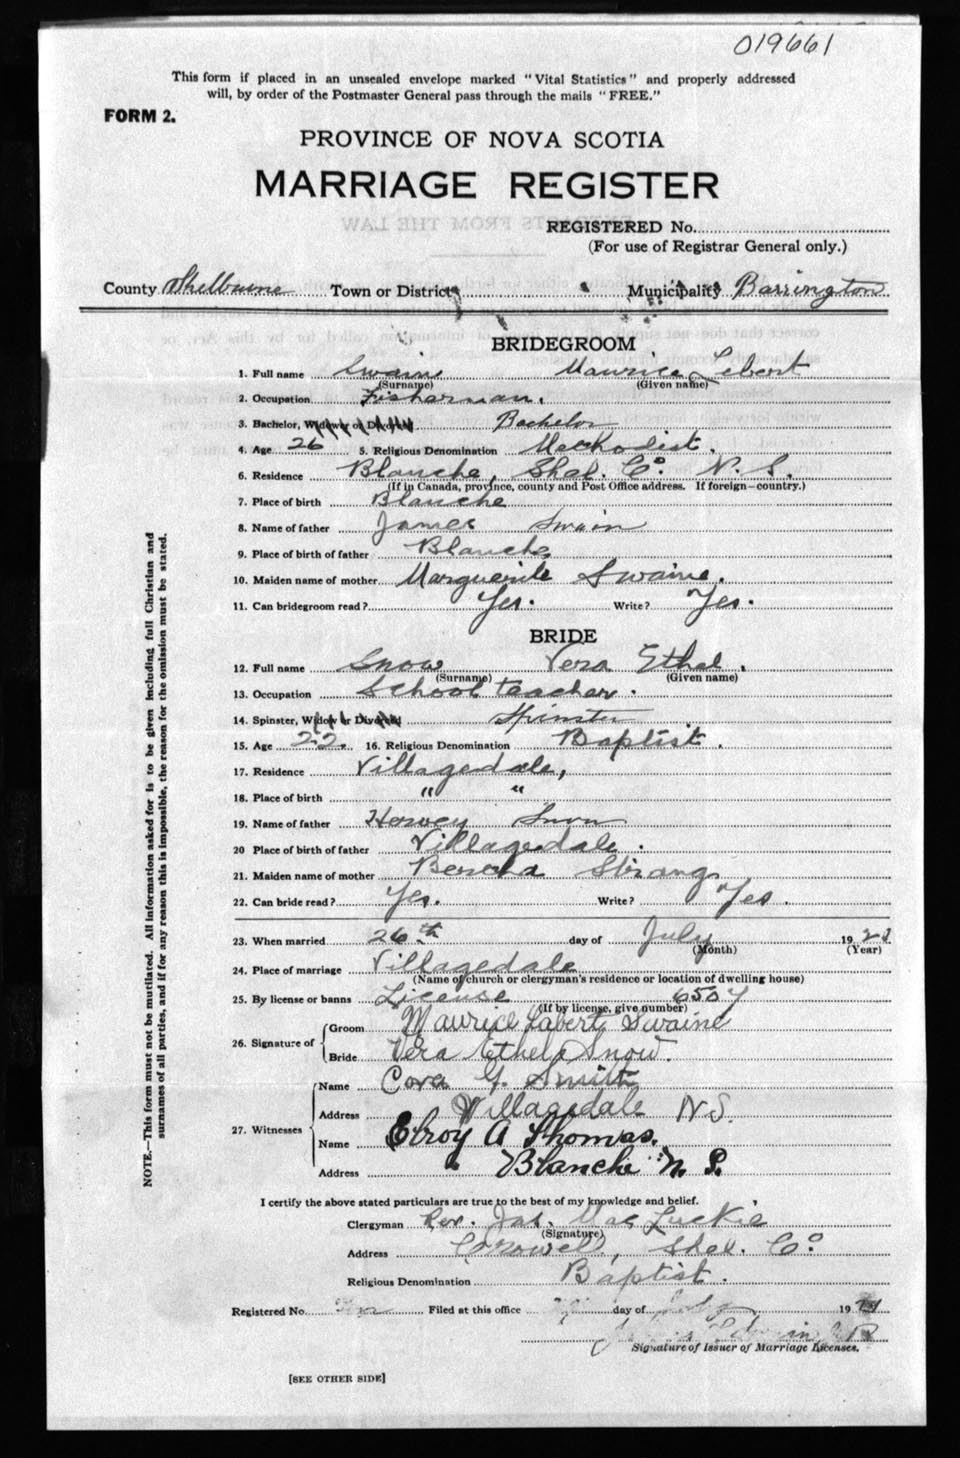 019661
This form if placed in an unsealed envelope marked "Vital Statistics" and properly addressed
will, by order of the Postmaster General pass through the mails "FREE."
FORM 2.
PROVINCE OF NOVA SCOTIA
MARRIAGE REGISTER
REGISTERED No.
(For use of Registrar General only.)
County Shelburne Town or District Municipality Barrington
BRIDEGROOM
1. Full name Swaine Maurice Lebert
(Surname) (Given name)
2. Occupation Fisherman.
3. Bachelor, Widower or Divorced Bachelor
4. Age 26 5. Religious Denomination Methodist.
6. Residence Blanche, Shel. Co. N. S.
(If in Canada, province, county and Post Office address. If foreign—country.)
7. Place of birth Blanche
8. Name of father James Swain
9. Place of birth of father Blanche
10. Maiden name of mother Marguerite Swaine.
11. Can bridegroom read? Yes. Write? Yes.
BRIDE
12. Full name Snow Vera Ethel.
(Surname) (Given name)
13. Occupation School teacher.
14. Spinster, Widow or Divorced Spinster
15. Age 22. 16. Religious Denomination Baptist.
17. Residence Villagedale,
18. Place of birth " "
19. Name of father Harvey Snow
20 Place of birth of father Villagedale.
21. Maiden name of mother Bertha Strang
22. Can bride read? Yes. Write? Yes.
23. When married 26th day of July 19
(Month) (Year)
24. Place of marriage Villagedale
(Name of church or clergyman's residence or location of dwelling house)
25. By license or banns License 6507
(If by license, give number)
26. Signature of Groom Maurice Labert Swaine
Bride Vera Ethel Snow.
27. Witnesses
Name Cora G. Smith
Address Villagedale N S.
Name Elroy A Thomas.
Address Blanche N. S.
I certify the above stated particulars are true to the best of my knowledge and belief.
Clergyman Rev. Jas. Mac Luckie
(Signature)
Address Crowell, Shel. Co.
Religious Denomination Baptist.
Registered No. Filed at this office day of July 19
Signature of Issuer of Marriage Licenses.
[SEE OTHER SIDE]
NOTE.—This form must not be mutilated. All information asked for is to be given including full Christian and
surnames of all parties, and if for any reason this is impossible, the reason for the omission must be stated.